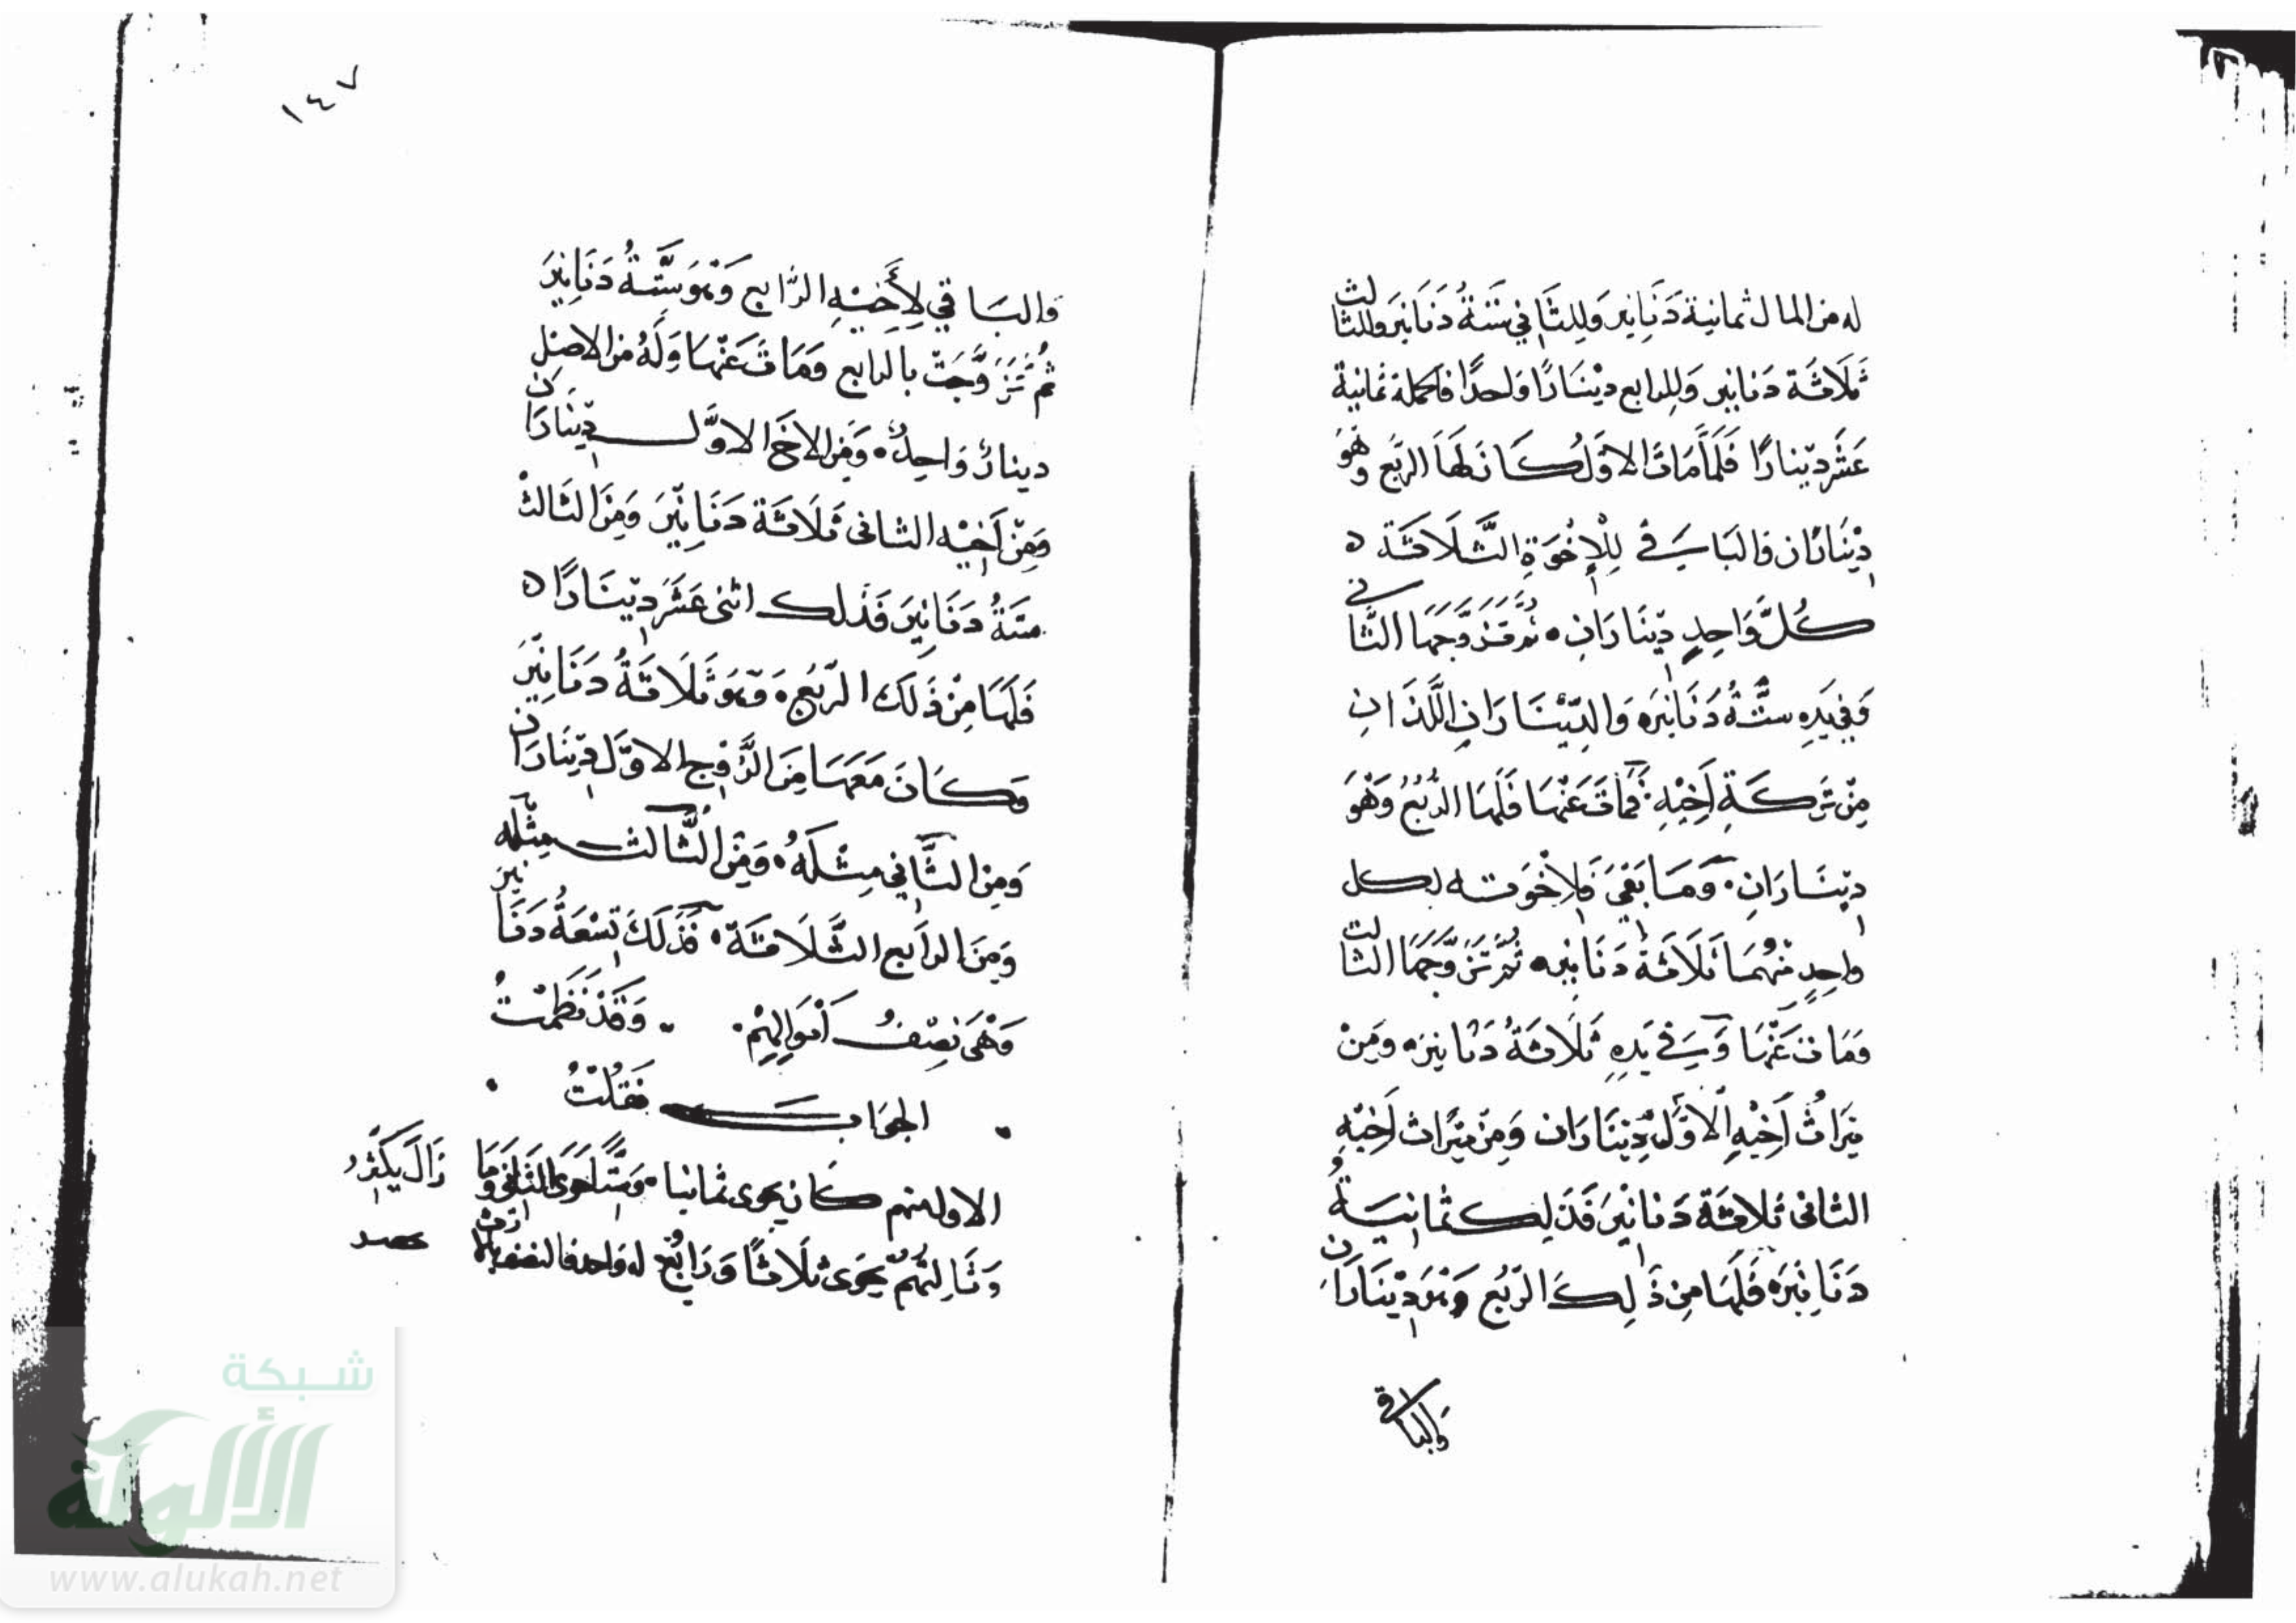 له من المال ثمانية دَنَانِير وَلِلثَّانِي سَتَّةُ دَنَانِيرَ وللثالث
ثَلَاثَة دَنانير وَلِلرابع دِيْنَارًا وَاحدًا فالجملة ثمانية
عَشَر دِينارًا فَلَمَّا مَاتَ الاوّلُ كَانَ لَهَا الرّبُع وهُوَ
دِيْنَارَان وَالبَاقِي لِلْإِخْوَةِ الثَّلَاثَة ه
كُلَّ وَاحِدٍ دِيْنَارَانِ ثُمَّ تَزَوَّجَهَا الثَّانِي
وَفِي يَدِهِ ستَّةُ دَنَانِيرَ وَالدِّيْنَارَانِ اللَّذَانِ
مِنْ تَرِكَةِ أَخِيْهِ فَمَاتَ عَنْهَا فَلَهَا الرُّبُعُ وَهُوَ
دِيْنَارَانِ وَمَا بَقِيَ فَلِإخْوَته لِكل
واحِدٍ مِنْهُمَا ثَلَاثَةُ دَنَانِيرَ ثُمَّ تَزَوَّجَهَا الثالث
وَمَاتَ عَنْهَا وَفِي يَدِهِ ثَلَاثَةُ دَنَانِيرَ وَمِنْ
مِيَراثُ أَخِيْهِ الْأَوَّلِ دِيْنَارَان وَمِنْ مِيْرَاث أَخِيْهِ
الثانى ثَلَاثَة دَنانِيْرَ فَذَلِك ثمَانِيَةُ
دَنَانِيْرَ فَلَهَا مِنْ ذَلِكَ الرّبُع وَهُوَ دِيْنَارَان
وَالبَاقي
١٤٧
وَالبَاقِي لِأَخِيْهِ الرَّابع وَهُوَ سِتَّةُ دَنَانِيرَ
ثُمَّ تَزَوَّجَتْ بالرابع وَمَاتَ عَنْهَا وَلَهُ مِن الاصْل
دينارٌ وَاحِدٌ وَمِنَ الاخَ الاوَّل دِيْنَارَان
وَمِنْ أَخِيْهِ الثانى ثَلَاثَة دَنَانِيْرَ وَمِنَ الثَالث
ستةُ دَنَانِيَر فَذلك اثنى عَشَرَ دِيْنَارًا ه
فَلَهَا مِنْ ذَلَكَ الرّبُع وَهُوَ ثَلَاثَةُ دَنَانِيْرَ
وَكَانَ مَعَهَا مِنَ الزَّوْج الاوَّل دِيْنَارَان
وَمِنَ الثَّانِي مِثْلَهُ وَمِنَ الثَّالث مِثْلَه
وَمِنَ الرابع الثَّلَاثَة فَذَلَكَ تِسْعَةُ دَنَانير
وَهْيَ نِصْفُ أَمْوَالِهِمْ وَقَدْ نَظَمْتُ
الجَوَاب فَقُلْتُ
الاول منهم كَان يحوى ثمانيا وَسِتًّا حَوَى الثَّانِي وَمَا زَالَ يَكْثُر
وَثَالِثُهُمْ يَحْوَى ثَلَاثًا وَرَابعٌ له وَاحد فالنصف بالارث